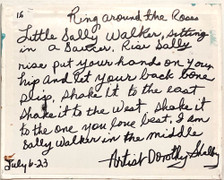 16
Ring around the Roses
Little Sally Walker, sitting
in a Saucer. Rise Sally
rise put your hands on your
hip and let your back bone
slip, shake it to the east
shake it to the West shake it
to the one you love best, I am
Sally Walker in the middle
Artist Dorothy
July 6-23